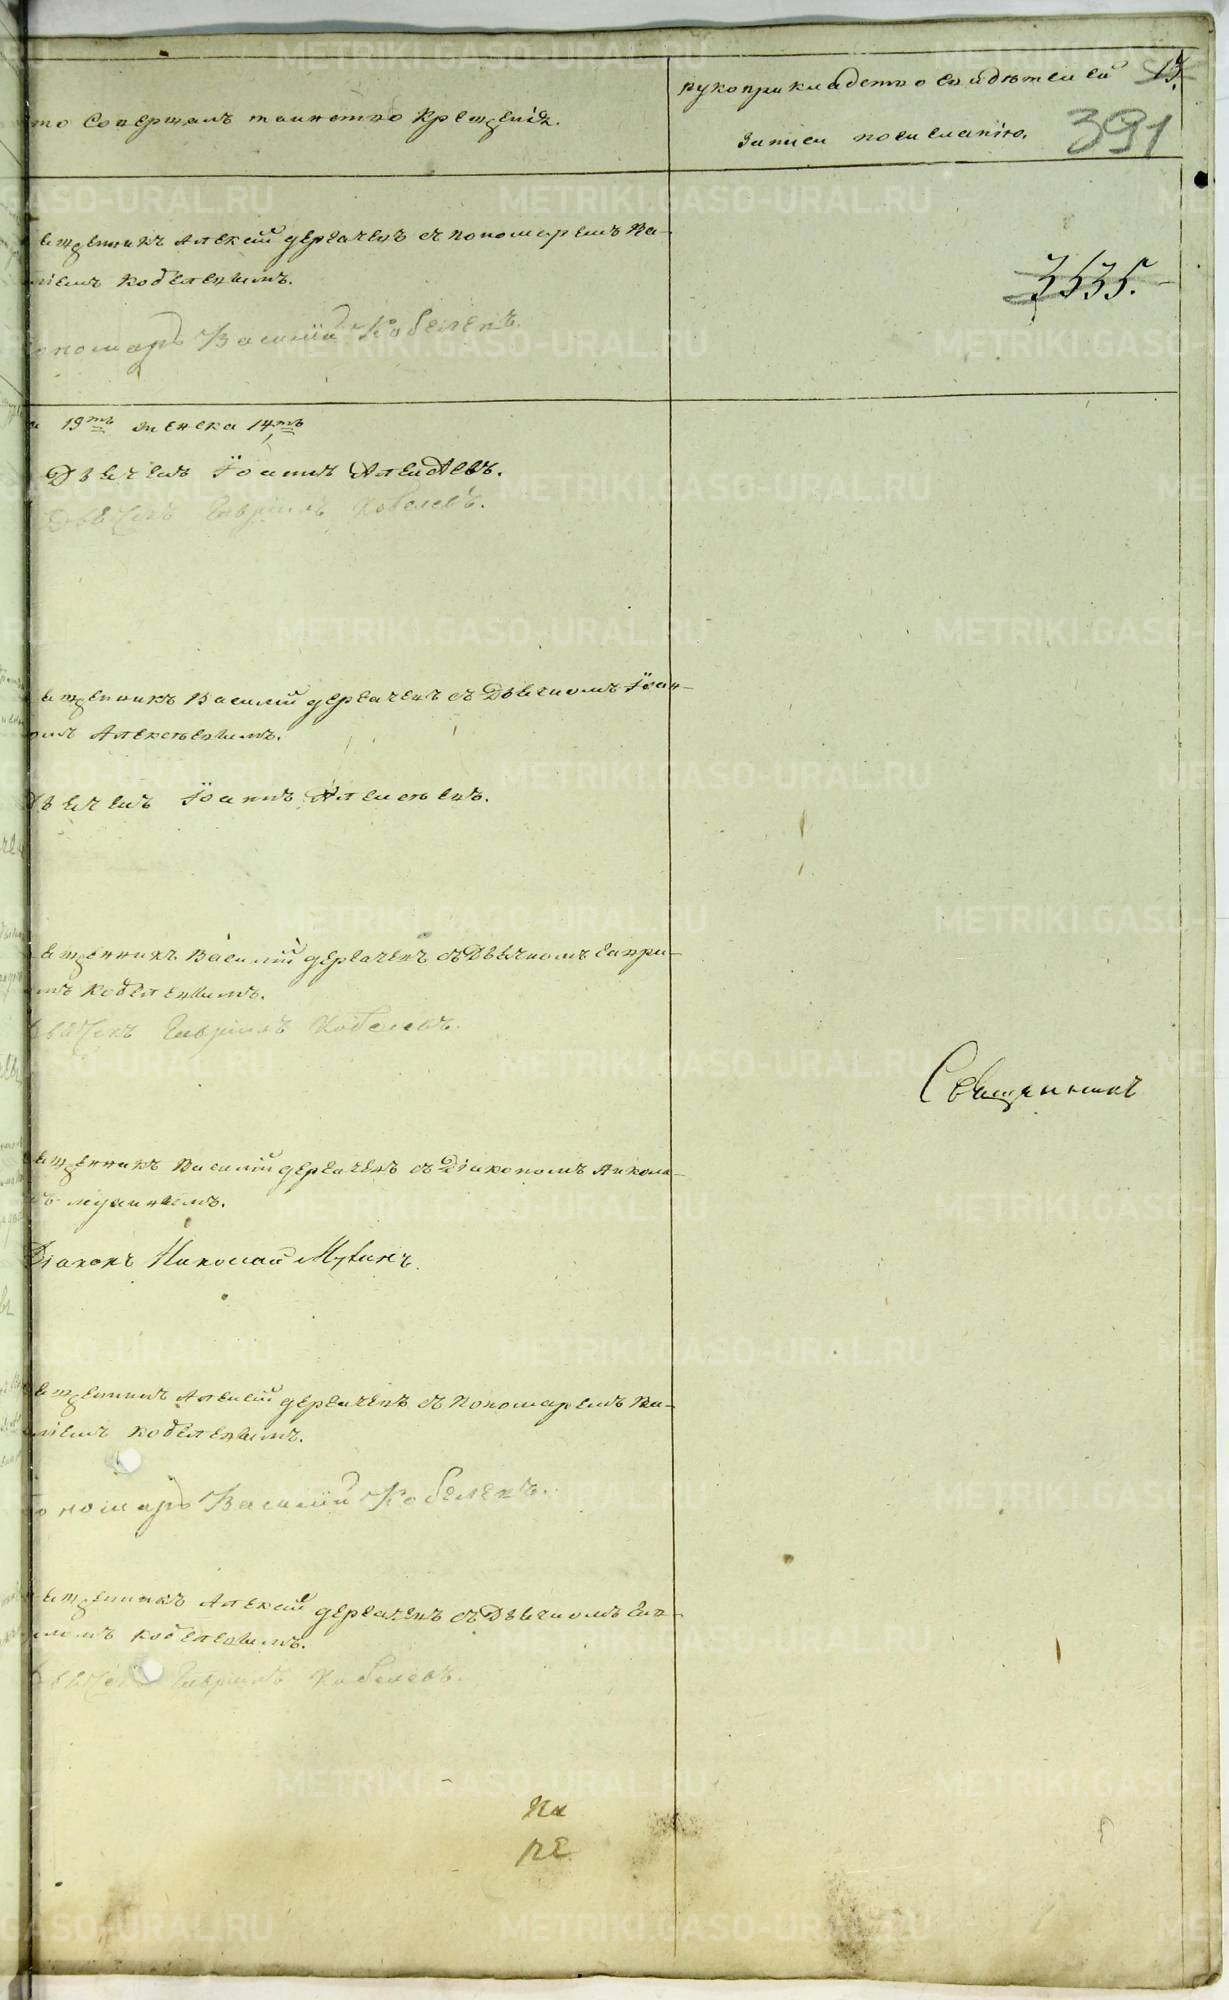 то Совершалъ таинство Крещенія.
рукоприкладство свидѣтелей
записи по желанію.
13.
391
ященникъ Алексій Дергачевъ съ пономаремъ Ва-
иліемъ Кобелевымъ.
3535.
ономарь Василій Кобелевъ.
19тъ женска 14тъ
Дьячекъ Іоаннъ Алексѣевъ.
Дьячекъ Гавріилъ Кобелевъ.
ященникъ Василій Дергачевъ съ Дьячкомъ Іоан-
омъ Алексѣевымъ.
Дьячекъ Іоаннъ Алексѣевъ.
ященникъ Василій Дергачевъ съ Дьячкомъ Гаври-
мъ Кобелевымъ.
Дьячекъ Гавріилъ Кобелевъ.
Священникъ
ященникъ Василій Дергачевъ съ Діакономъ Никола-
Діаконъ Николай
ященникъ Алексій Дергачевъ съ Пономаремъ Ва-
иліемъ Кобелевымъ.
ономарь Василій Кобелевъ.
ященникъ Алексій Дергачевъ съ Дьячкомъ Гав-
ріиломъ Кобелевымъ.
Дьячекъ Гавріилъ Кобелевъ.
METRIKI.GASO-URAL.RU